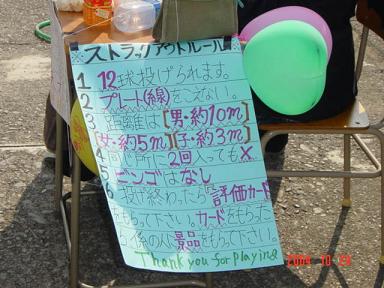 ストラックアウトルール
1 12球投げられます。
2 プレート(線)をこえない。
3 距離は[男・約10m]
[女・約5m][子・約3m]
4 同じ所に2回入っても×
5 ビンゴはなし
6 投げ終わったら評価カード
をもらって下さい。カードをもらった
ら係の人景品もらって下さい。
Thank you for playing
2004 10 23